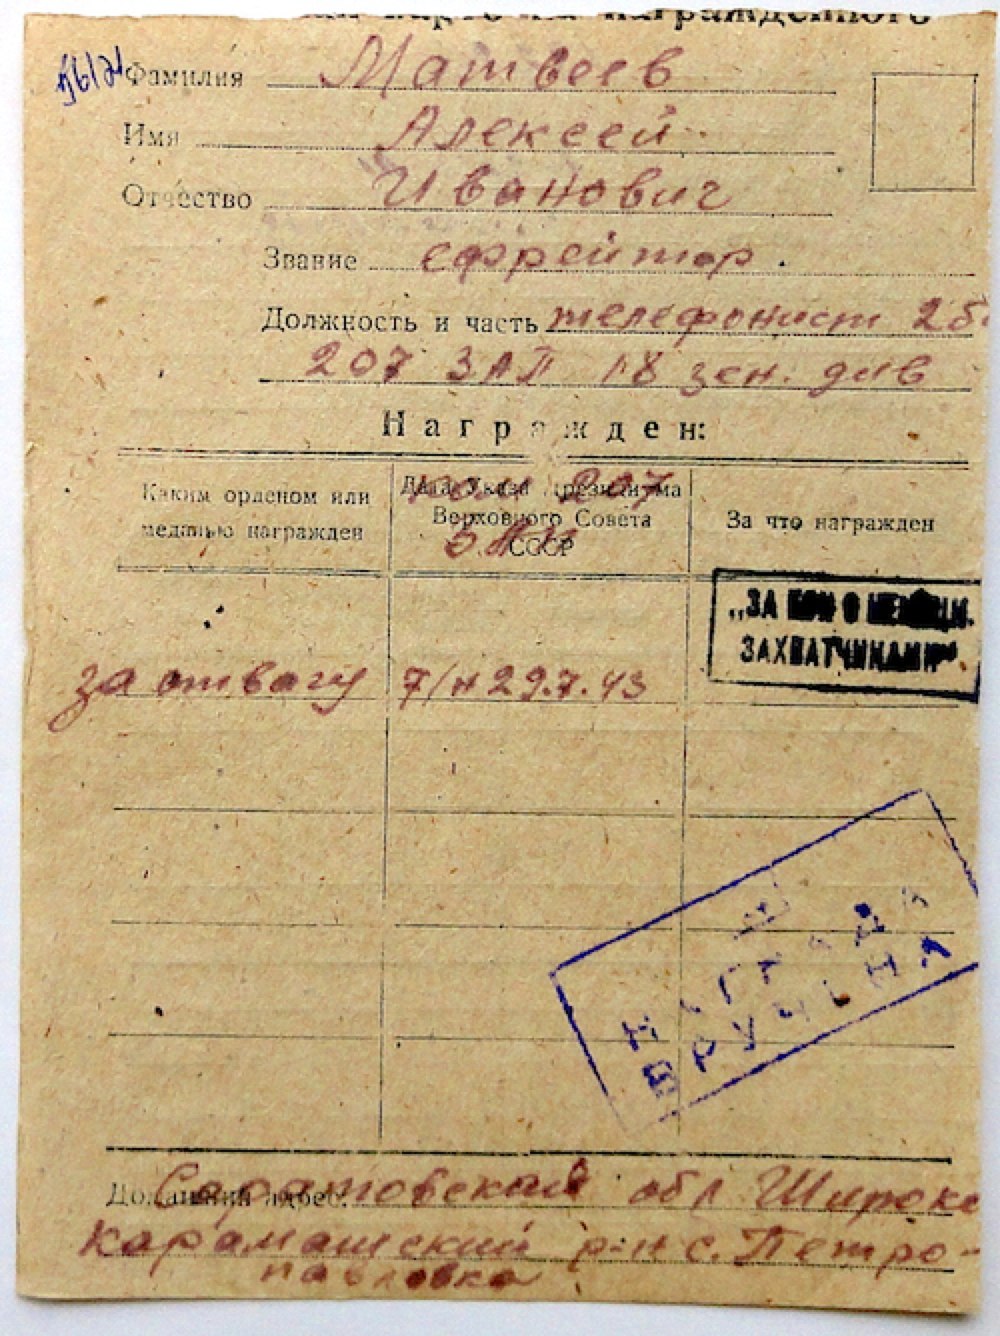 награжденного
Фамилия Матвеев
Имя Алексей
Отчество Иванович
Звание ефрейтор.
Должность и часть телефонист 2б
207 ЗАП 18 зен. див
Награжден:
Каким орденом или медалью награжден
Дата Указа Президиума Верховного Совета СССР
207
За что награжден
„ЗА БОИ С НЕМЕЦК.
ЗАХВАТЧИКАМИ"
за отвагу 7/н 29.7.43
НЕ
НАГРАДА
ВРУЧЕНА
Домашний адрес: Саратовский обл Широко
Карамашский р-н с. Петро-
павловка